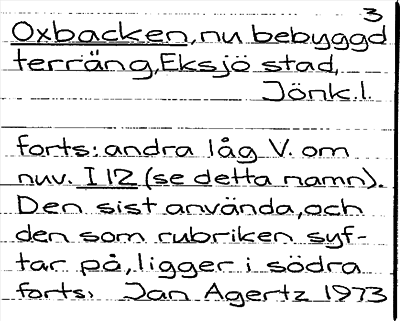 3
Oxbacken, nu bebyggd
terräng, Eksjö stad,
Jönk.l.
forts: andra låg V. om
nuv. I 12 (se detta namn).
Den sist använda, och
den som rubriken syf-
tar på, ligger i södra
forts, Jan Agertz 1973